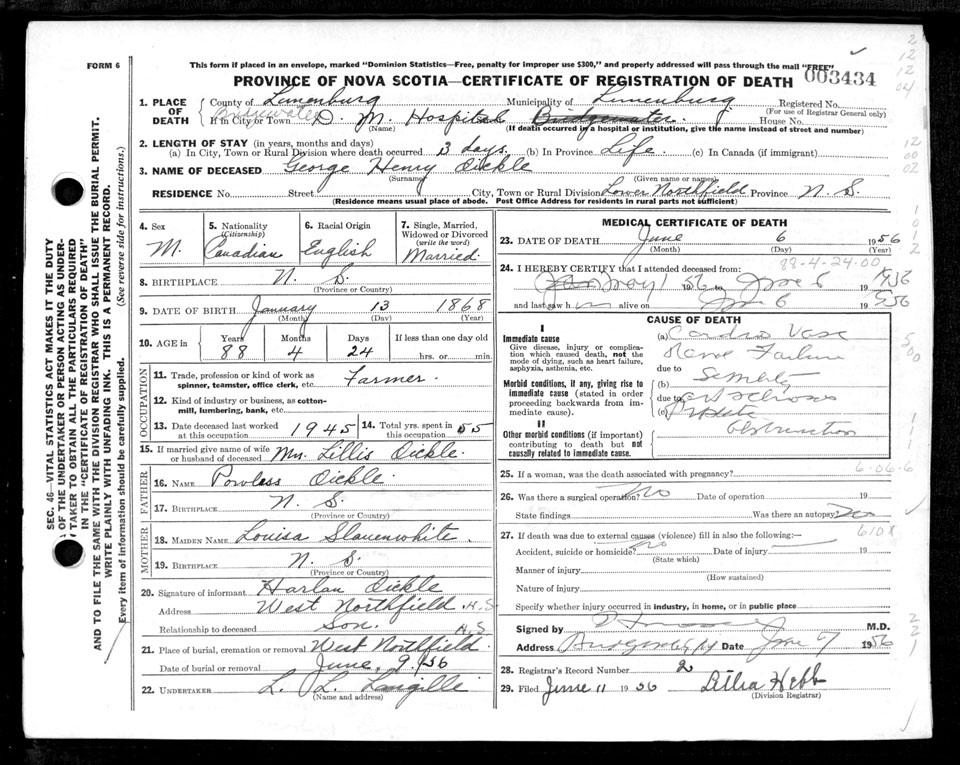 FORM 6
This form if placed in an envelope, marked "Dominion Statistics—Free, penalty for improper use $300," and properly addressed will pass through the mail "FREE"
PROVINCE OF NOVA SCOTIA—CERTIFICATE OF REGISTRATION OF DEATH
003434
1. PLACE OF DEATH
County of Lunenburg Municipality of Lunenburg Registered No.
(For use of Registrar General only)
Bridgewater
If in City or Town D. M. Hospital Bridgewater. House No.
(Name) (If death occurred in a hospital or institution, give the name instead of street and number)
2. LENGTH OF STAY (in years, months and days)
(a) In City, Town or Rural Division where death occurred 3 days. (b) In Province Life. (c) In Canada (if immigrant)
3. NAME OF DECEASED George Henry Oickle
(Surname) (Given name or names)
RESIDENCE No. Street City, Town or Rural Division Lower Northfield Province N. S.
(Residence means usual place of abode. Post Office Address for residents in rural parts not sufficient)
4. Sex
M.
5. Nationality (Citizenship)
Canadian
6. Racial Origin
English
7. Single, Married, Widowed or Divorced (write the word)
Married.
8. BIRTHPLACE N. S.
(Province or Country)
9. DATE OF BIRTH January 13 1868
(Month) (Day) (Year)
10. AGE in Years Months Days If less than one day old
88 4 24 hrs. or min.
OCCUPATION
11. Trade, profession or kind of work as spinner, teamster, office clerk, etc. Farmer.
12. Kind of industry or business, as cotton-mill, lumbering, bank, etc.
13. Date deceased last worked at this occupation 1945
14. Total yrs. spent in this occupation 55
15. If married give name of wife or husband of deceased Mrs. Lillis Oickle.
FATHER
16. NAME Powless Oickle.
17. BIRTHPLACE N. S.
(Province or Country)
MOTHER
18. MAIDEN NAME Louisa Slauenwhite.
19. BIRTHPLACE N. S.
(Province or Country)
20. Signature of informant Harlan Oickle
Address West Northfield N.S
Relationship to deceased Son. N.S
21. Place of burial, cremation or removal West Northfield.
Date of burial or removal June 9. 1956
22. UNDERTAKER L. L. Langille
(Name and address)
MEDICAL CERTIFICATE OF DEATH
23. DATE OF DEATH June 6 1956
(Month) (Day) (Year)
88-4-24-00
24. I HEREBY CERTIFY that I attended deceased from:
May 1 1956 to June 6 1956
and last saw him alive on June 6 1956
CAUSE OF DEATH
I
Immediate cause
Give disease, injury or complication which caused death, not the mode of dying, such as heart failure, asphyxia, asthenia, etc.
(a) Cardio Vasc
Failure
due to
Morbid conditions, if any, giving rise to immediate cause (stated in order proceeding backwards from immediate cause).
(b) Senility
due to
(c) Prostate
Obstruction
II
Other morbid conditions (if important) contributing to death but not causally related to immediate cause.
25. If a woman, was the death associated with pregnancy?
6-06-6
26. Was there a surgical operation? No Date of operation 19
State findings Was there an autopsy? No
27. If death was due to external causes (violence) fill in also the following:—
610X
Accident, suicide or homicide? no Date of injury 19
(State which)
Manner of injury
(How sustained)
Nature of injury
Specify whether injury occurred in industry, in home, or in public place
Signed by M.D.
Address Bridgewater Date June 7 1956
28. Registrar's Record Number 2
29. Filed June 11 1956 Lillia Hebb
(Division Registrar)
SEC. 46—VITAL STATISTICS ACT MAKES IT THE DUTY
OF THE UNDERTAKER OR PERSON ACTING AS UNDER-
TAKER TO OBTAIN ALL THE PARTICULARS REQUIRED
IN THE "CERTIFICATE OF REGISTRATION OF DEATH"
AND TO FILE THE SAME WITH THE DIVISION REGISTRAR WHO SHALL ISSUE THE BURIAL PERMIT.
WRITE PLAINLY WITH UNFADING INK. THIS IS A PERMANENT RECORD.
Every item of information should be carefully supplied. (See reverse side for instructions.)